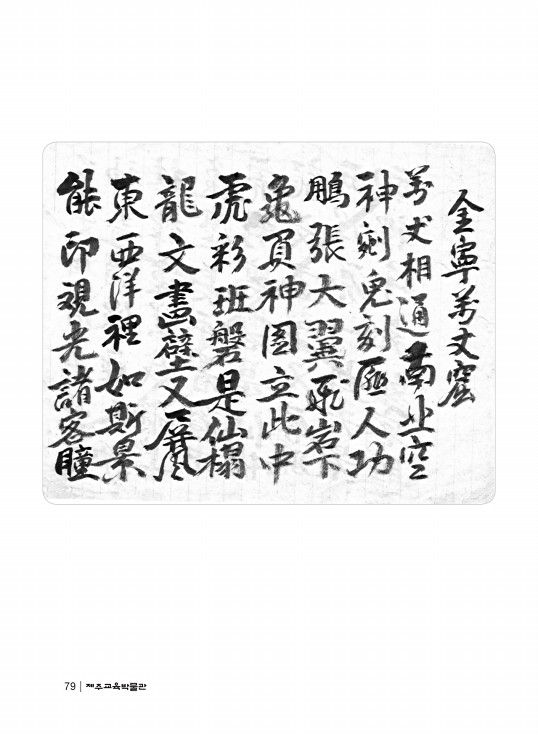 金寧萬丈窟
萬丈相通南北空
神劍鬼刻匪人功
鵬張大翼飛岩下
龜負神圖立此中
虎彩班磐是仙榻
龍文畵壁又屛風
東西洋裡如斯景
能印観光諸客瞳
79 | 제주교육박물관